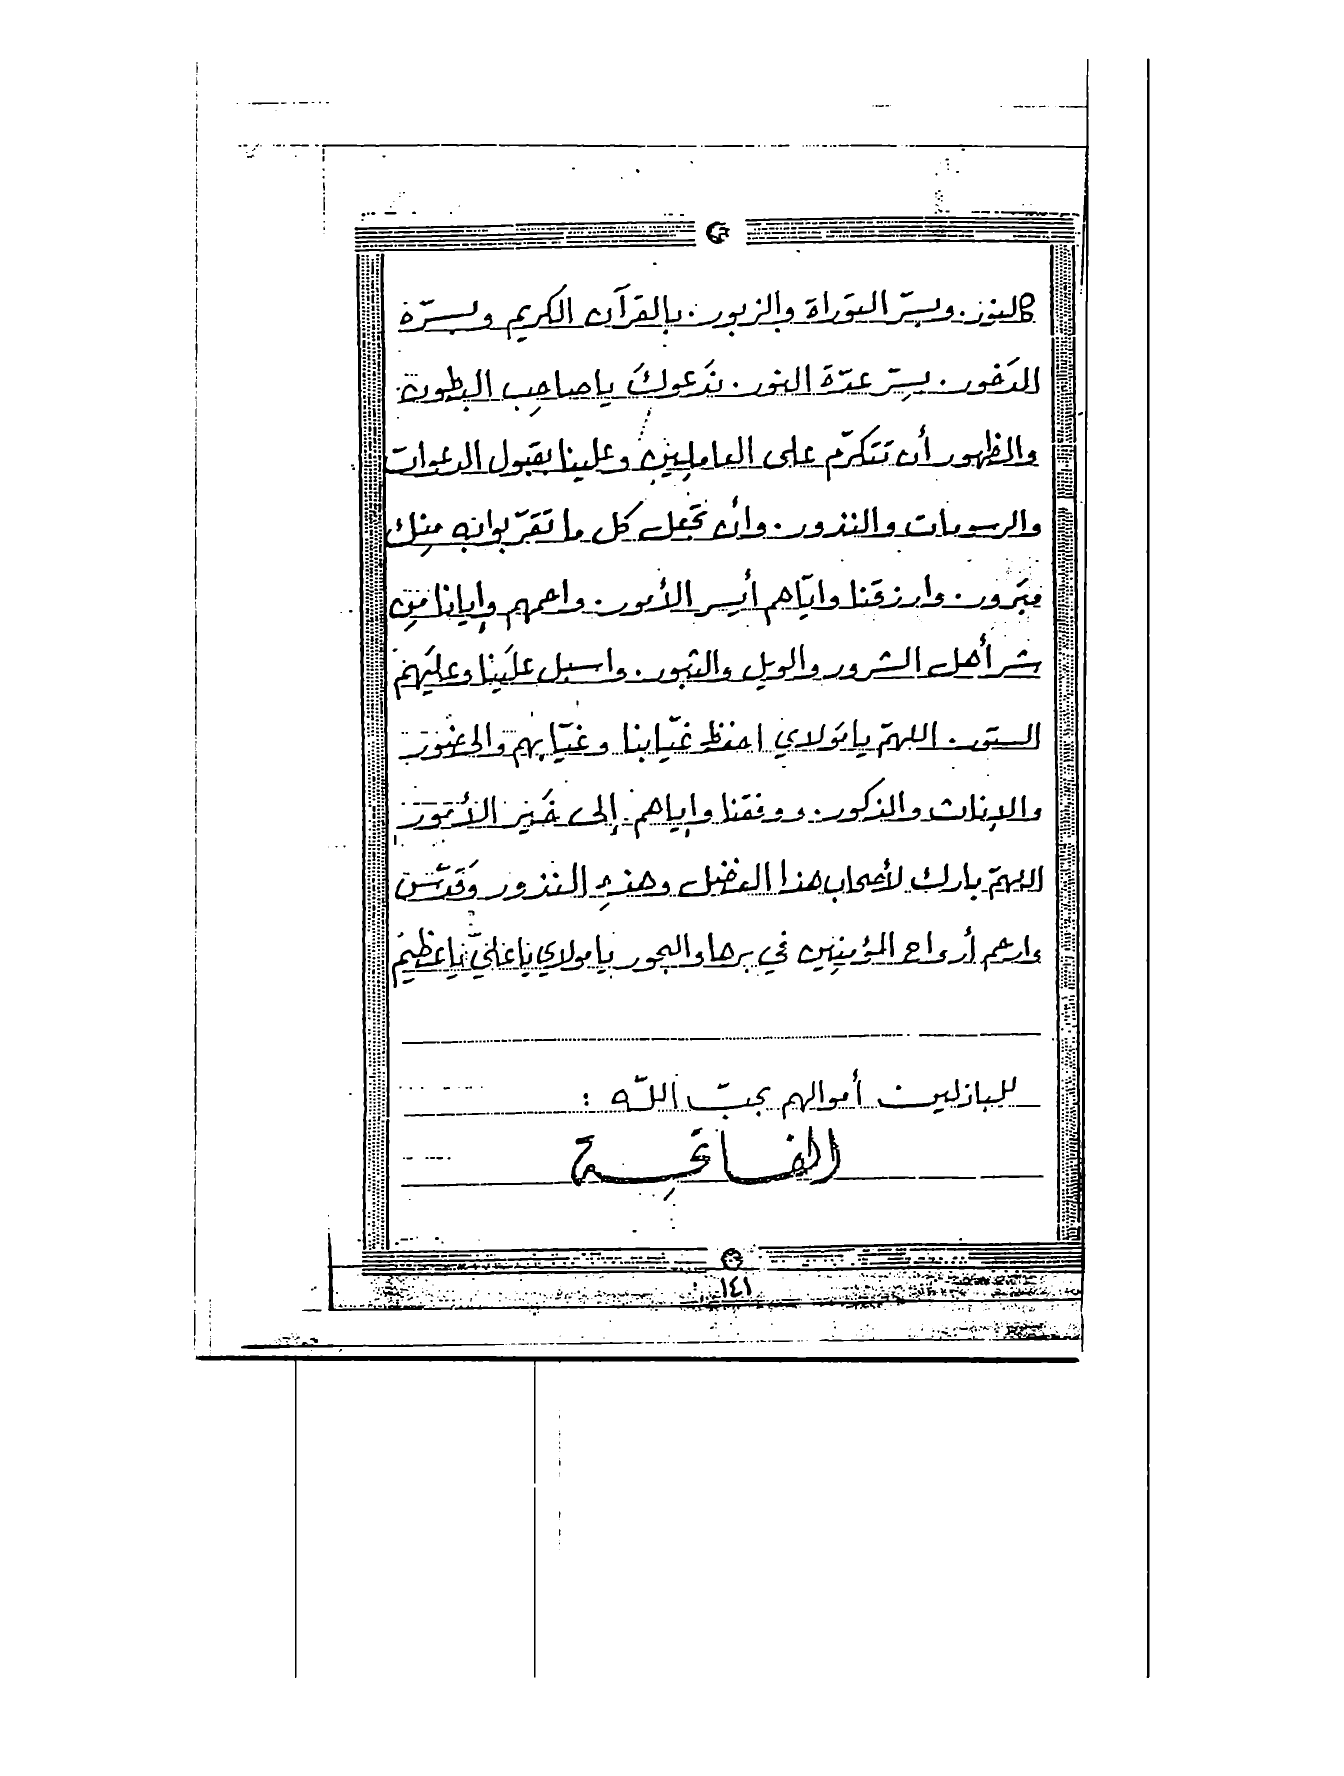 النور. وبسرّ التوراة والزبور. بالقرآن الكريم وبسرّه
المدخور. بسِرّ عدّة النور. نَدعوكَ يا صاحِب البطون
والظهور أن تَتَكرّم على العامِلِين وعلينا بقبول الدعوات
والرسومات والنذور. وأن تجعل كل ما تقرّبوا به مِنك
مبَرور. وارزقنا وايّاهم أيسر الأمور. واحمهم وإيانا مِن
شر أهل الشرور والويل والثبور. واسبل علَينا وعليَهم
الستور. اللهمّ يا مَولاي احفظ غيّابنا وغيّابهم والحضور
والإناث والذكور. ووفقنا وإياهم. إلى خَير الأُمور
اللهمّ بارك لأصحاب هذا الفضل وهذهِ النذور وَقَدّس
وارحم أرواح المؤمنِين في برها والبحور يا مولاي يا عَليّ يا عَظيمُ
للباذلين أموالهم بحبّ اللّه :
الفاتِحة
١٤١